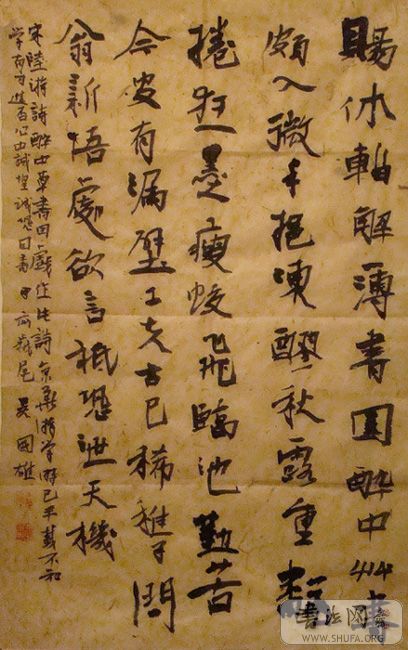 賜休暫解薄書圍醉中艸
頗入微手挹凍醪秋露重
捲狂墨瘦蛟飛臨池勤苦
今安有漏壁工夫古已稀稚子問
翁新悟處欲言祇恐泄天機
宋陸游詩醉中草書因戲作此詩
吴國雄
书法网
WWW.SHUFA.ORG